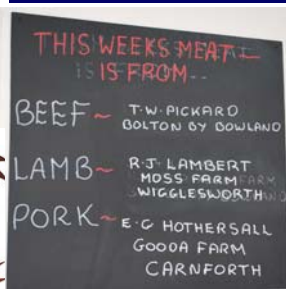 THIS WEEKS MEAT
IS FROM
BEEF ~ T.W. PICKARD
BOLTON BY BOWLAND
LAMB ~ R.J. LAMBERT
MOSS FARM
WIGGLESWORTH
PORK ~ E.G HOTHERSALL
GOODA FARM
CARNFORTH